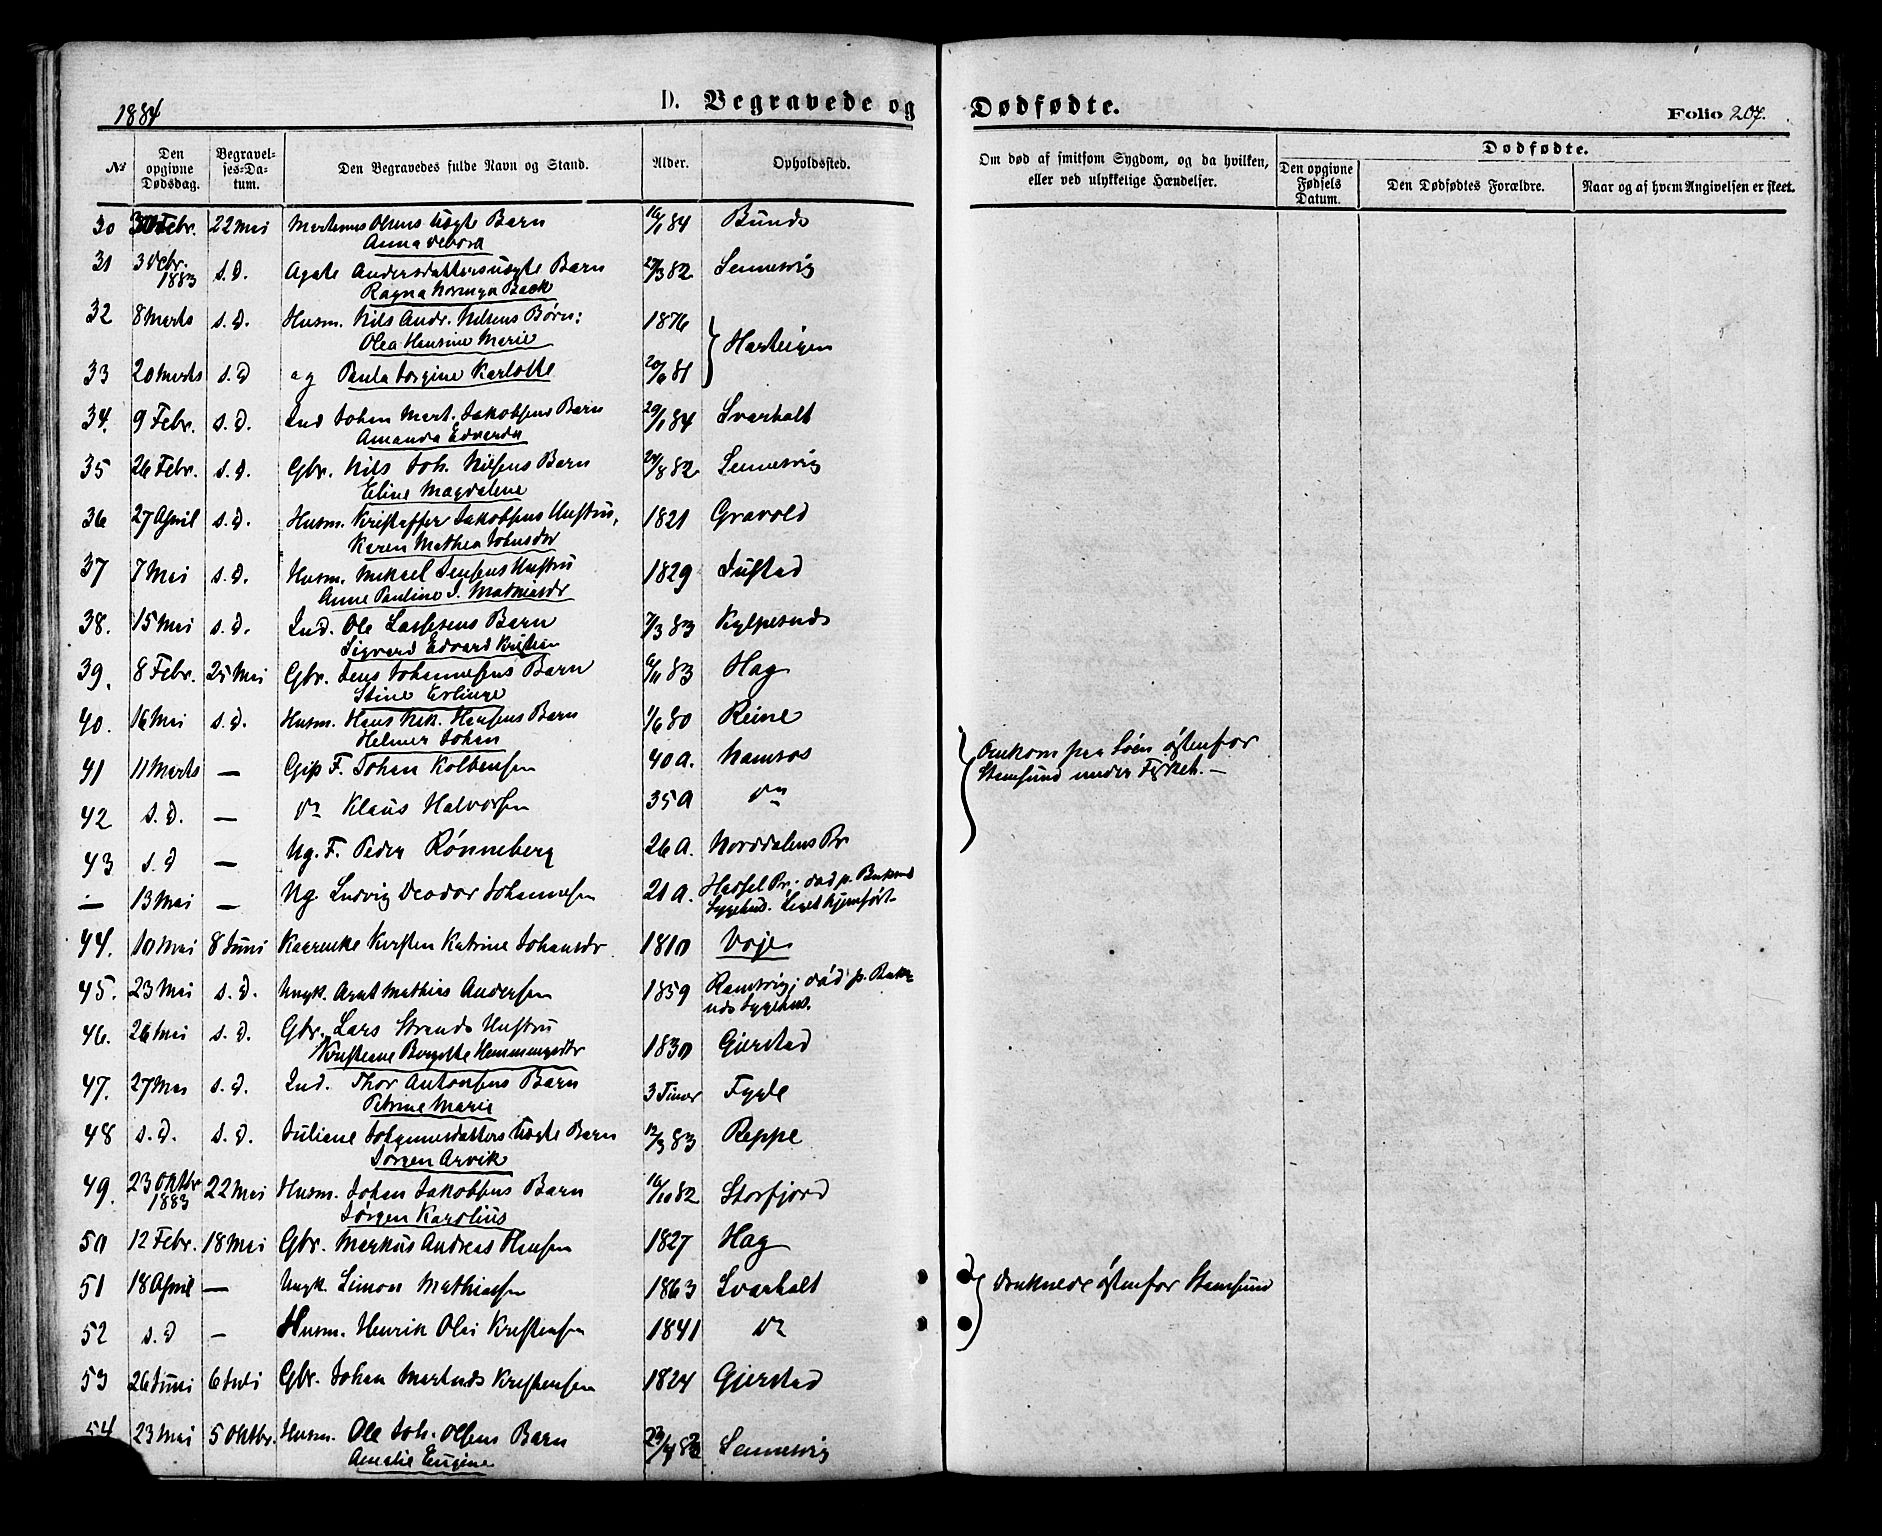 1884
D. Begravede og Dødfødte.
Folio 207.
No
Den opgivne Dødsdag.
Begravelses-Datum.
Den Begravedes fulde Navn og Stand.
Alder.
Opholdssted.
Om død af smitsom Sygdom, og da hvilken, eller ved ulykkelige Hændelser.
Dødfødte.
Den opgivne Fødsels Datum.
Den Dødfødtes Forældre.
Naar og af hvem Angivelsen er skeet.
30 Febr. 22 Mai Martinus Olsens Barn 16/1 84
Anna Debora
31 3 Debr. 1883 s.D. Agate Andersdatters uægte Barn 27/3 82 Sennesvig
Ragna Back
32 8 Marts s.D. Husm. Nils Andr. Nilsens Børn: 1876
Olea Hansine Marie Harteigen
33 20 Marts s.D og Paula Jorgine Karlotte 81
34. 9 Febr. s.D. Ind Johan Mart. Jakobsens Barn 29/1 84 Svarholt
Amanda Edvarda
35 26 Febr. s.D. Gbr. Nils Joh. Nilsens Barn 24/8 82 Sennesvig
Eline Magdalene
36 27 April s.D. Husm. Kristoffer Jakobsens Hustru, 1821 Gravold
Karen Mathea Johnsdr
37 7 Mai s.D. Husm. Mikael Jensens Hustru 1829 Justad
Anne Pauline J. Mathiasdr
38. 15 Mai s.D. Ind. Ole Larsens Barn 7/3 83
Sigvard Edvard Kristian
39. 8 Febr. 25 Mai Gbr. Jens Johannesens Barn 6/11 83 Hag
Stine Erlinge
40. 16 Mai s.D. Husm. Hans Hansens Barn 1/6 80 Reine
Helmer Johan
41 11 Marts — Gift F. Johan Kolbensen 40 A. Namsos
Omkom paa Söen östenfor
Stamsund under Fisket. —
42 s.D. — do Klaus Halvorsen 35 A do
43 s.D — Ug. F. Peder Rønneberg 26 A. Norddalens Pr.
— 13 Mai — Ug. Ludvig Deodor Johannesen 21 A. Hadsel Pr; död p. Buksnes
Sygehus. Liget hjemført
44. 10 Mai 8 Juni Kaarenke Kirsten Katrine Johansdr. 1810 Voje
45. 23 Mai s.D. Ungk. Arnt Mathias Andersen 1859 Ramsvig; död p. Buks-
nes Sygehus.
46. 26 Mai s.D. Gbr. Lars Strands Hustru
Kristiane Birgitte Hemmingsdtr 1830 Gjerstad
47. 27 Mai s.D. Ind. Thor Antonsens Barn 3 Timer Fygle
Petrine Marie
48 s.D. s.D. Juliane Johannesdatters uægte Barn 12/3 83 Reppe
Jörgen Arvik
49. 23 Oktbr. 1883 22 Mai Husm. Johan Jakobsens Barn 16/10 82 Storfjord
Jörgen Karolius
50 12 Febr. 18 Mai Gbr. Markus Andreas Hansen 1827 Hag
51 18 April — Ungk. Simon Mathiasen 1863 Svarholt
druknede östenfor Stamsund
52 s.D — Husm. Henrik Olai Kristensen 1841 do
53 26 Juni 6 Juli Gbr. Johan Martinus Kristensen 1824 Gjerstad
54 23 Mai 5 Oktbr. Husm. Ole Joh. Olsens Barn Sennesvig
Amalie Eugine